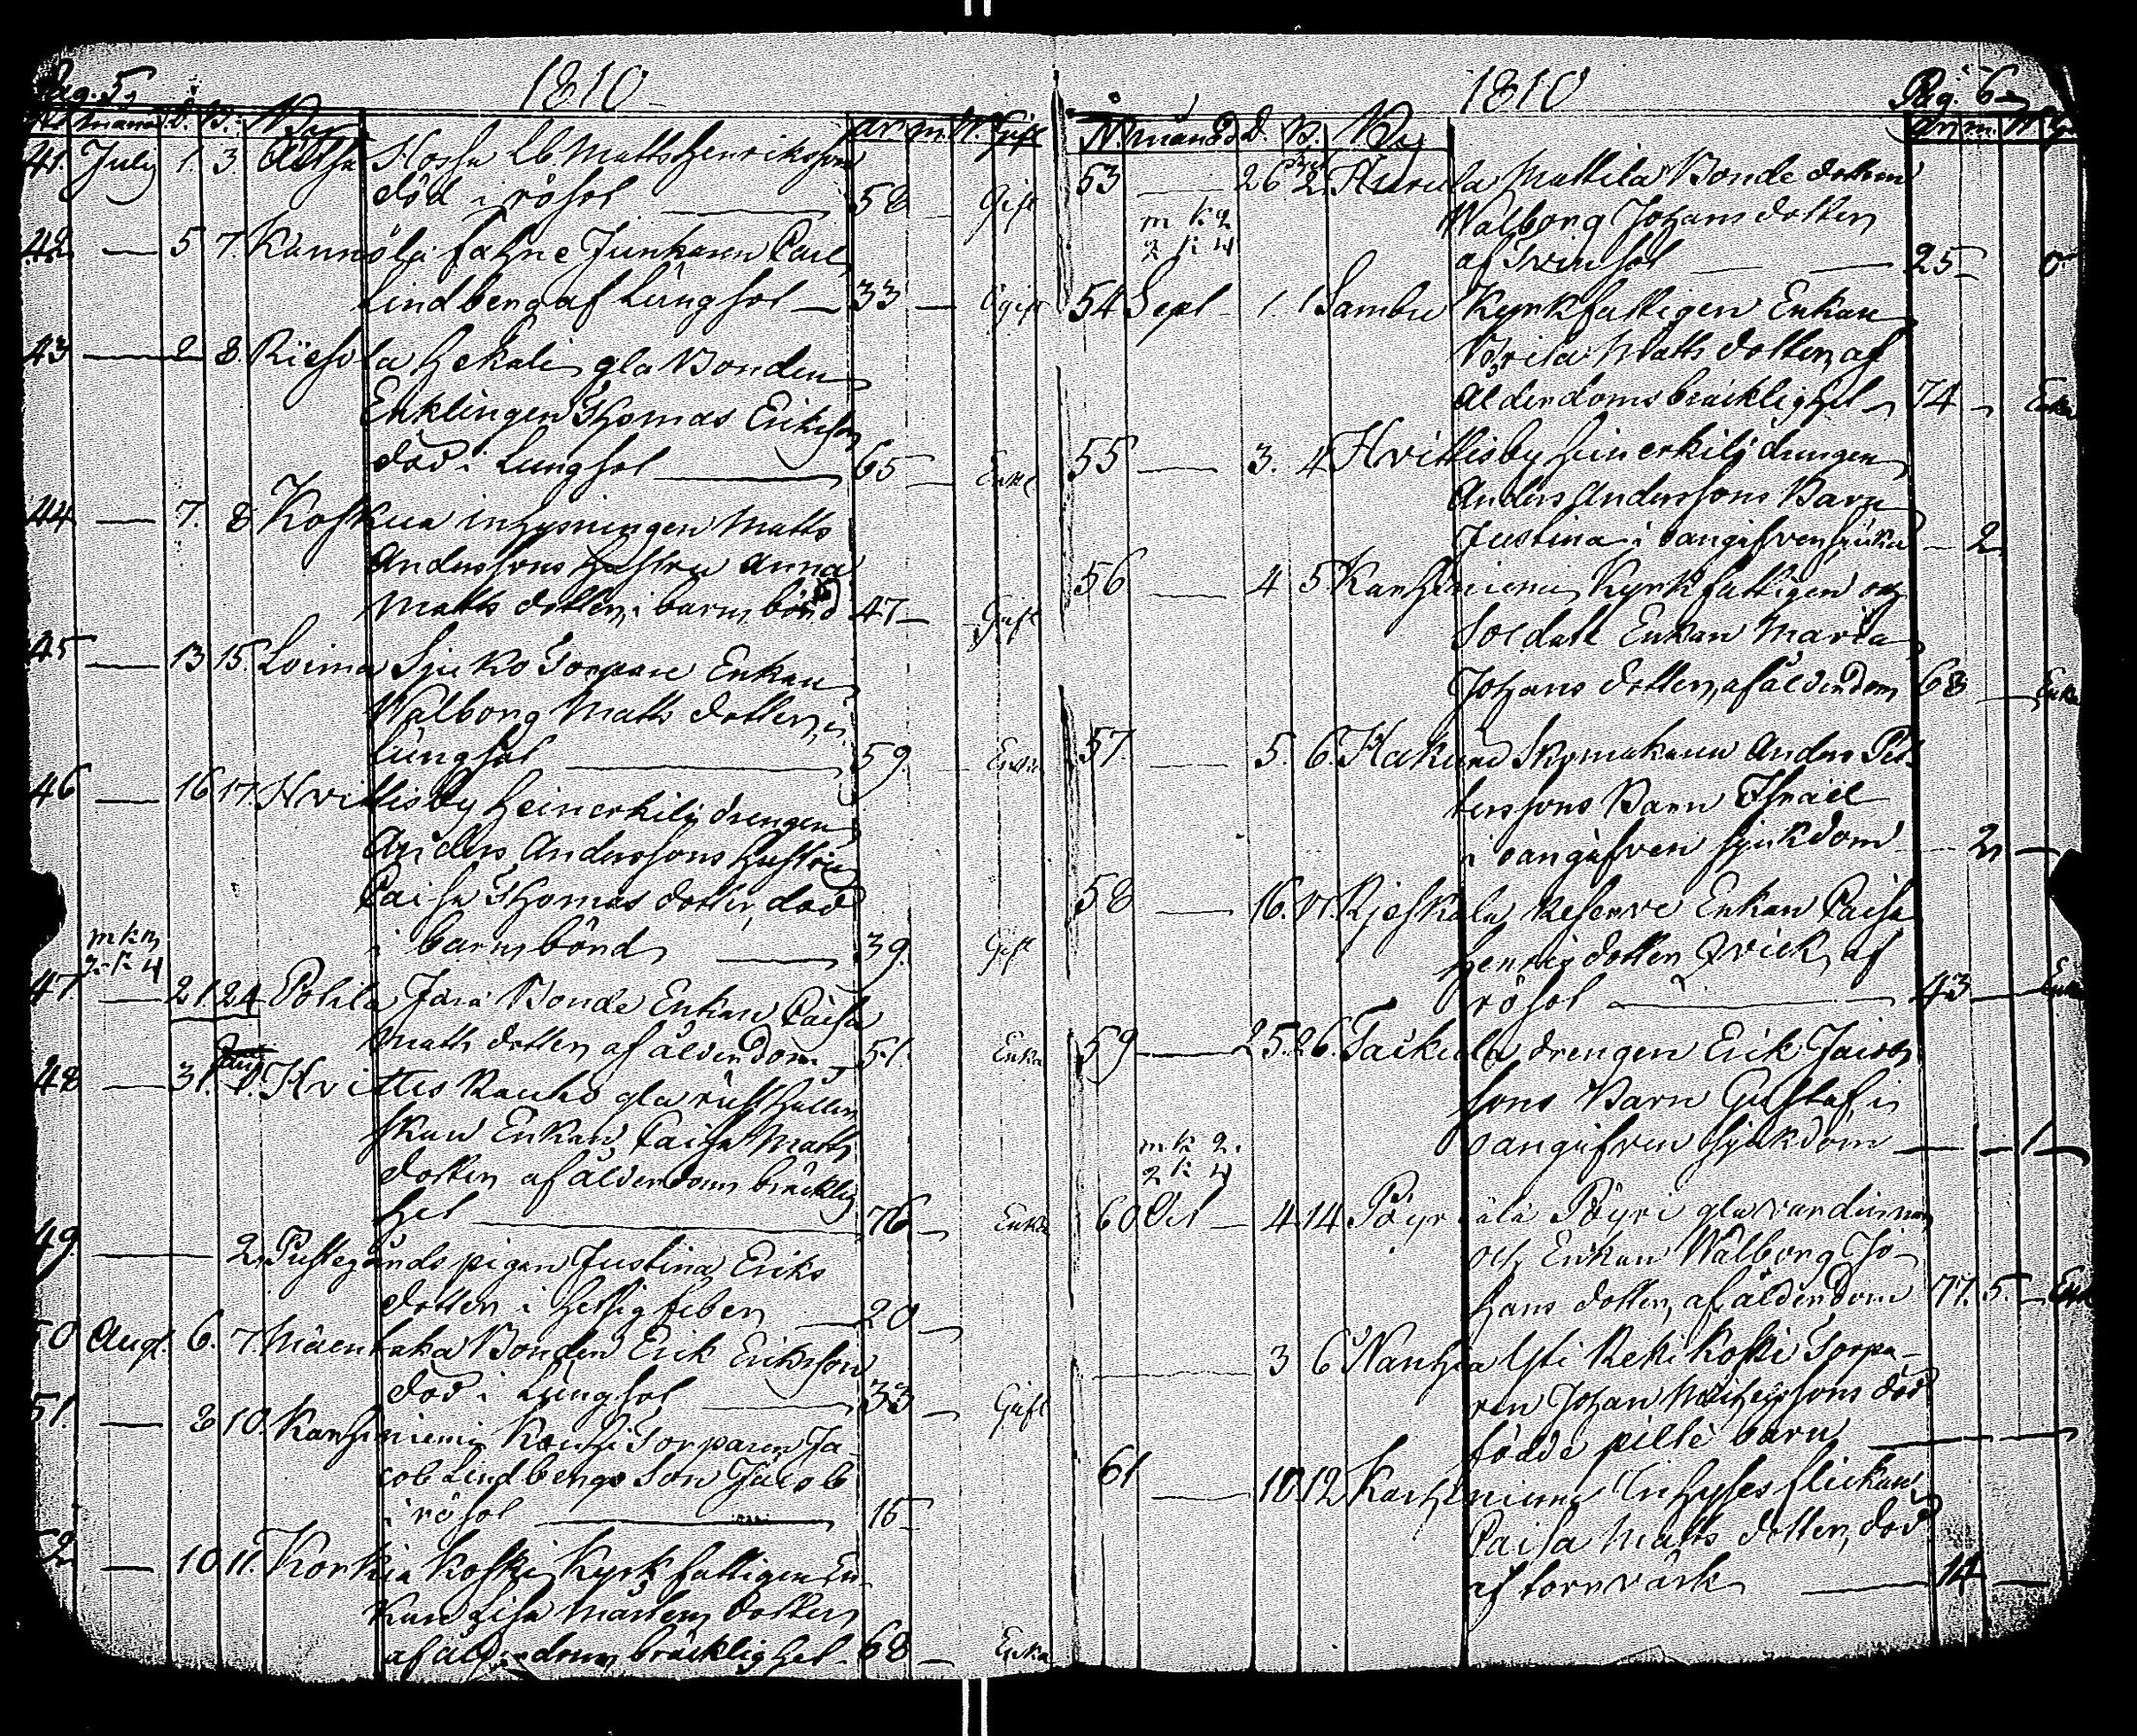 Pag. 5
1810
No manad D. B. By år m. W. Gift
41. July 1. 3. Ahsta Hossa Lb Matts Henriksson
död i rösot 58 Gift
42 5 7. Kannölä fahne Junkaren Carl
Lindberg af Lungsot 33 Ogift
43 2 8. Riesola Hekali gla Bonden
Enklingen Thomas Eriksson
död i Lungsot 65 Enkl
44 7. 8 Koskua inhysningen Matts
Anderssons hustru Anna
Matts dotter, i barnsbörd 47 Gift
45 13 15. Loima Sjuko Torpare Enkan
Walborg Matts dotter, i
Lungsot 59. Enka
46 16 17. Hvittisby heinerkilj drengen
Anders Anderssons hustru
Caisa Thomas dotter, död
i barnsbörd 39. Gift
m k 3
2 k 4
47. 21. 24 Pohila Jara Bonde Enkan Caisa
Matts dotter af ålderdom 51. Enka
48 31. Aug 1. Hvittis Rauho gla rusthållar
skan Enkan Caisa Matts
dotter af ålderdoms bräcklig
het 76 Enka
49. 2. Puhtegånds pigan Justina Eriks
dotter i hetsig feber 20
50 Augt. 6. 7. Mäenkaka Bonden Erik Eriksson
död i Lungsot 33 Gift
51. 8 10. Karhiniemi Kauhi Torparen Ja-
cob Lindbergs Son Jacob
i rösot 15
52 10 11. Korkia Koski Kyrkfattigen En-
kan Lisa Mårtens dotter
af ålderdoms bräcklighet 68 Enka
1810
Pag. 6
N. månad D. B. By år m. W. G
53 26 28 Hurula Mattila Bonde dottern
Walborg Johans dotter
m k 2
2 k 4
af Tvinsot 25 o
54 Sept 1. 1 Sambu Kyrkfattigen Enkan
Brita Matts dotter, af
Ålderdoms bräcklighet 74 Enka
55 3. 4 Hvittisby heinerkilj drengen
Anders Anderssons Barn
Justina i oangifven sjuka 2
56 4 5 Karhiniemi Kyrkfattigen och
Soldate Enkan Maria
Johans dotter, af ålderdom 68 Enka
57. 5. 6. Kakuri Skomakaren Anders Pet-
terssons Barn Israel
i oangifven sjukdom 2
58 16. 17. Kjeskala Reserve Enkan Caisa
Henrics dotter Qvick, af
rösot 43 Enka
59 25. 26. Taikula drengen Erik Jacobs
sons Barn Gustaf, i
oangifven sjukdom 1
m k 2.
2 k 4
60 Oct 4 14 Pöyriälä Pöyri gla vardinnan
och Enkan Walborg Jo-
hans dotter, af ålderdom 77. 5. Enk
3 6 Nanhia Yli Rekikoski Torpa-
ren Johan Michelssons död
födde pilte barn
61 10 12 Karhiniemi Inhyses flickan
Caisa Matts dotter, död
af torrvärk 14